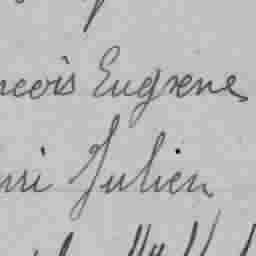 ncois Eugxene
nri Julien